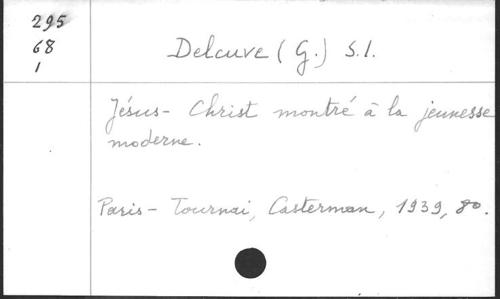 295
68
1
Delcuve (G.) S.I.
Jésus-Christ montré à la jeunesse
moderne.
Paris-Tournai, Casterman, 1939, 8º.